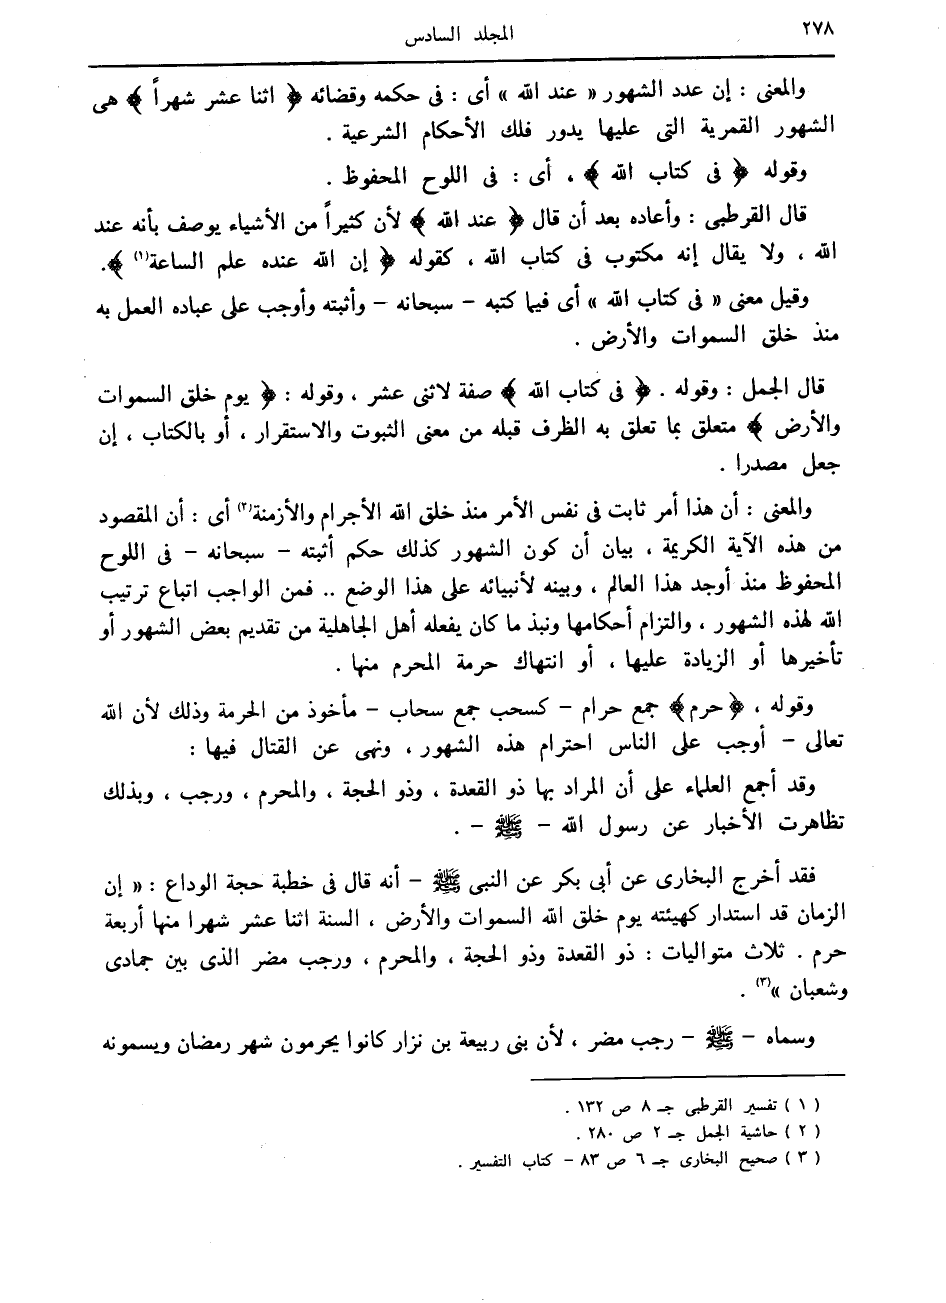 ٢٧٨
المجلد السادس
والمعنى : إن عدد الشهور « عند الله » أى : فى حكمه وقضائه ﴿ اثنا عشر شهراً ﴾ هى
الشهور القمرية التى عليها يدور فلك الأحكام الشرعية .
وقوله ﴿ فى كتاب الله ﴾ ، أى : فى اللوح المحفوظ .
قال القرطبى : وأعاده بعد أن قال ﴿ عند الله ﴾ لأن كثيراً من الأشياء يوصف بأنه عند
الله ، ولا يقال إنه مكتوب فى كتاب الله ، كقوله ﴿ إن الله عنده علم الساعة(١) ﴾.
وقيل معنى « فى كتاب الله » أى فيما كتبه – سبحانه – وأثبته وأوجب على عباده العمل به
منذ خلق السموات والأرض .
قال الجمل : وقوله . ﴿ فى كتاب الله ﴾ صفة لاثنى عشر ، وقوله : ﴿ يوم خلق السموات
والأرض ﴾ متعلق بما تعلق به الظرف قبله من معنى الثبوت والاستقرار ، أو بالكتاب ، إن
جعل مصدرا .
والمعنى : أن هذا أمر ثابت فى نفس الأمر منذ خلق الله الأجرام والأزمنة(٢) أى : أن المقصود
من هذه الآية الكريمة ، بيان أن كون الشهور كذلك حكم أثبته – سبحانه – فى اللوح
المحفوظ منذ أوجد هذا العالم ، وبينه لأنبيائه على هذا الوضع .. فمن الواجب اتباع ترتيب
الله لهذه الشهور ، والتزام أحكامها ونبذ ما كان يفعله أهل الجاهلية من تقديم بعض الشهور أو
تأخيرها أو الزيادة عليها ، أو انتهاك حرمة المحرم منها .
وقوله ، ﴿ حرم ﴾ جمع حرام – كسحب جمع سحاب – مأخوذ من الحرمة وذلك لأن الله
تعالى – أوجب على الناس احترام هذه الشهور ، ونهى عن القتال فيها :
وقد أجمع العلماء على أن المراد بها ذو القعدة ، وذو الحجة ، والمحرم ، ورجب ، وبذلك
تظاهرت الأخبار عن رسول الله – ﷺ – .
فقد أخرج البخارى عن أبى بكر عن النبى ﷺ – أنه قال فى خطبة حجة الوداع : « إن
الزمان قد استدار كهيئته يوم خلق الله السموات والأرض ، السنة اثنا عشر شهرا منها أربعة
حرم . ثلاث متواليات : ذو القعدة وذو الحجة ، والمحرم ، ورجب مضر الذى بين جمادى
وشعبان »(٣) .
وسماه – ﷺ – رجب مضر ، لأن بنى ربيعة بن نزار كانوا يحرمون شهر رمضان ويسمونه
( ١ ) تفسير القرطبى جـ ٨ ص ١٣٢ .
( ٢ ) حاشية الجمل جـ ٢ ص ٢٨٠ .
( ٣ ) صحيح البخارى جـ ٦ ص ٨٣ – كتاب التفسير .